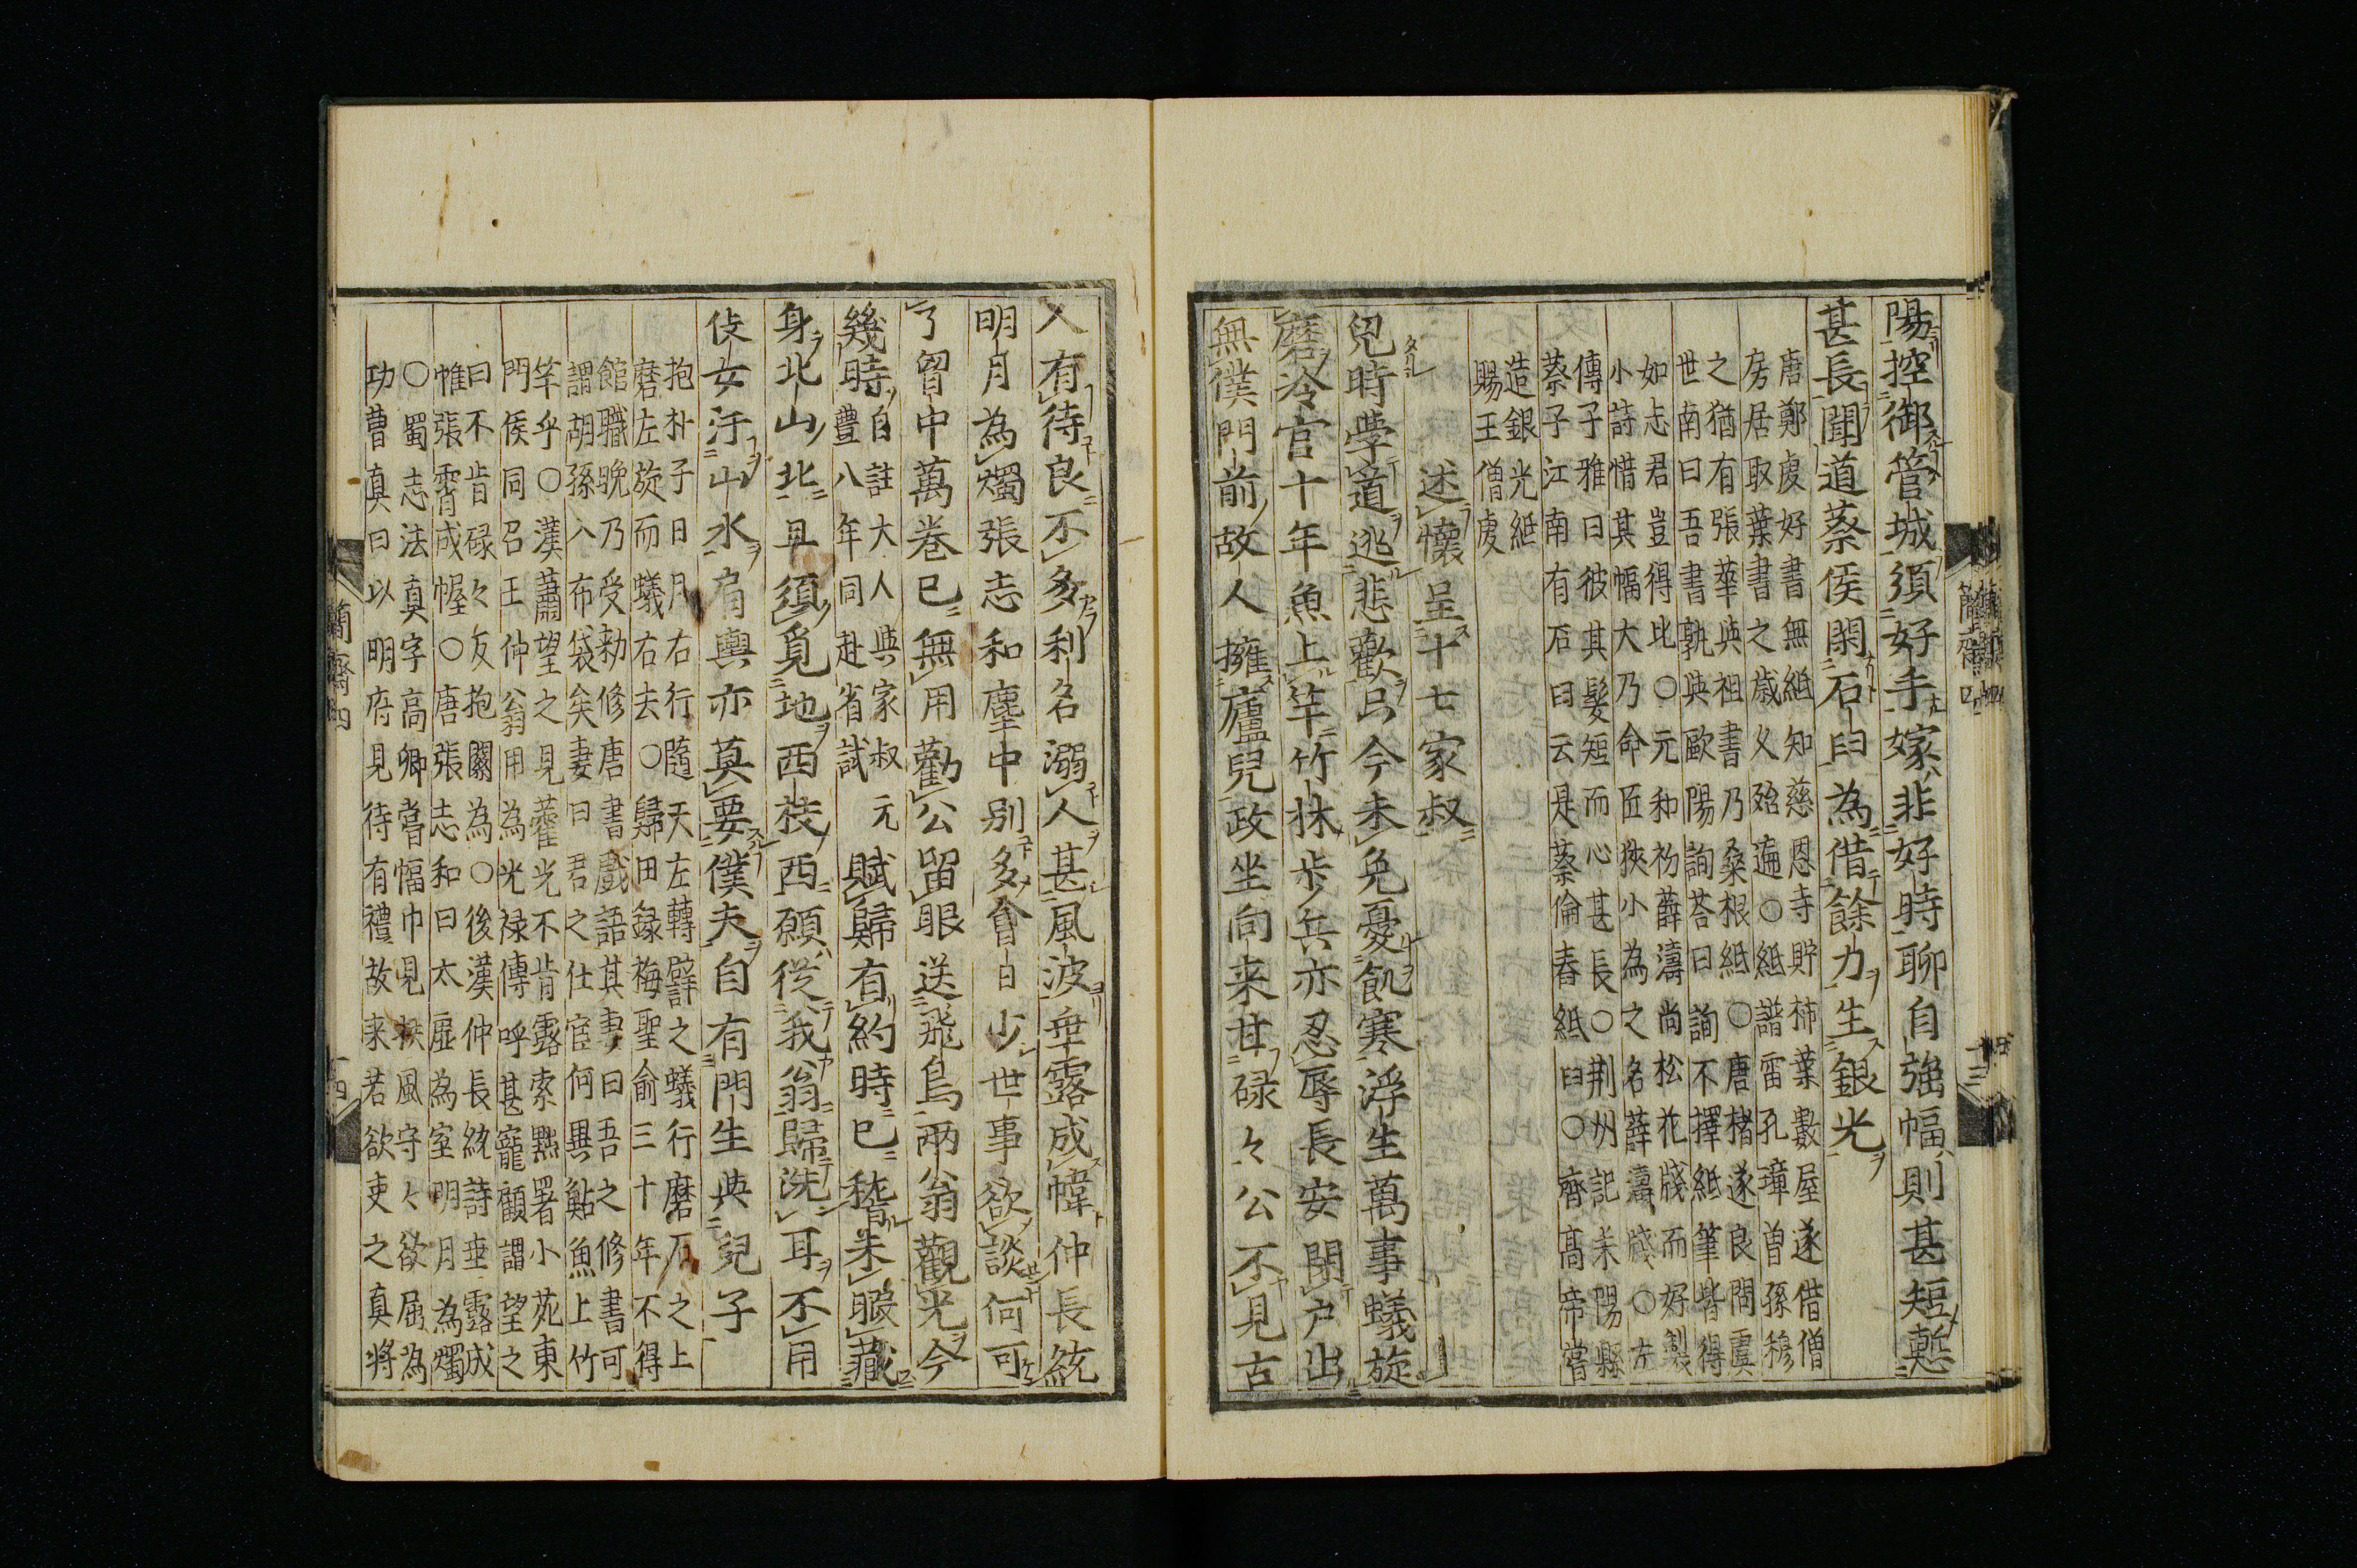 陽控御管城須好手嫁非好時聊自強幅則甚短慙
甚長聞道蔡侯閑石臼為借餘力生銀光
唐鄭虔好書無紙知慈恩寺貯柿葉數屋遂借僧
房居取葉書之歲久殆遍○紙譜雷孔璋曽孫穆
之猶有張華與祖書乃桑根紙○唐楮遂良問虞
世南曰吾書孰與歐陽詢荅曰詢不擇紙筆皆得
如志君豈得比○元和初薛濤尚松花牋而好製
小詩惜其幅大乃命匠狹小為之名薛濤牋○左
傳子雅曰彼其髮短而心甚長○荆州記耒陽縣
蔡子江南有石臼云是蔡倫舂紙臼○齊高帝嘗
造銀光紙
賜王僧虔
述懷呈十七家叔
兒時學道逃悲歡只今未免憂飢寒浮生萬事蟻旋
磨冷官十年魚上竿竹林步兵亦忍辱長安閉戶出
無僕門前故人擁廬兒政坐向来甘碌々公不見古
人有待良不多利名溺人甚風波垂露成幃仲長統
明月為燭張志和塵中別多會日少世事欲談何可
了胷中萬卷已無用勸公留眼送飛鳥兩翁觀光今
幾時自註大人與家叔元豊八年同赴省試賦歸有約時已稽未暇藏
身北山北且須覓地西枝西願從我翁歸洗耳不用
伎女汙山水肩輿亦莫要僕夫自有門生與兒子
抱朴子日月右行隨天左轉譬之蟻行磨石之上
磨左旋而蟻右去○歸田録梅聖俞三十年不得
館職晚乃受勑修唐書戲語其妻曰吾之修書可
謂胡孫入布袋矣妻曰君之仕宦何異鮎魚上竹
竿乎○漢蕭望之見藿光不肯露索㸃署小苑東
門侯同召王仲翁用為光禄傳呼甚寵顧謂望之
曰不肯碌々反抱關為○後漢仲長統詩垂露成
帷張霄成幄○唐張志和曰太虛為室明月為燭
○蜀志法真字高卿嘗幅巾見扶風守々欲屈為
功曹真曰以明府見待有禮故来若欲吏之真將
簡齋四